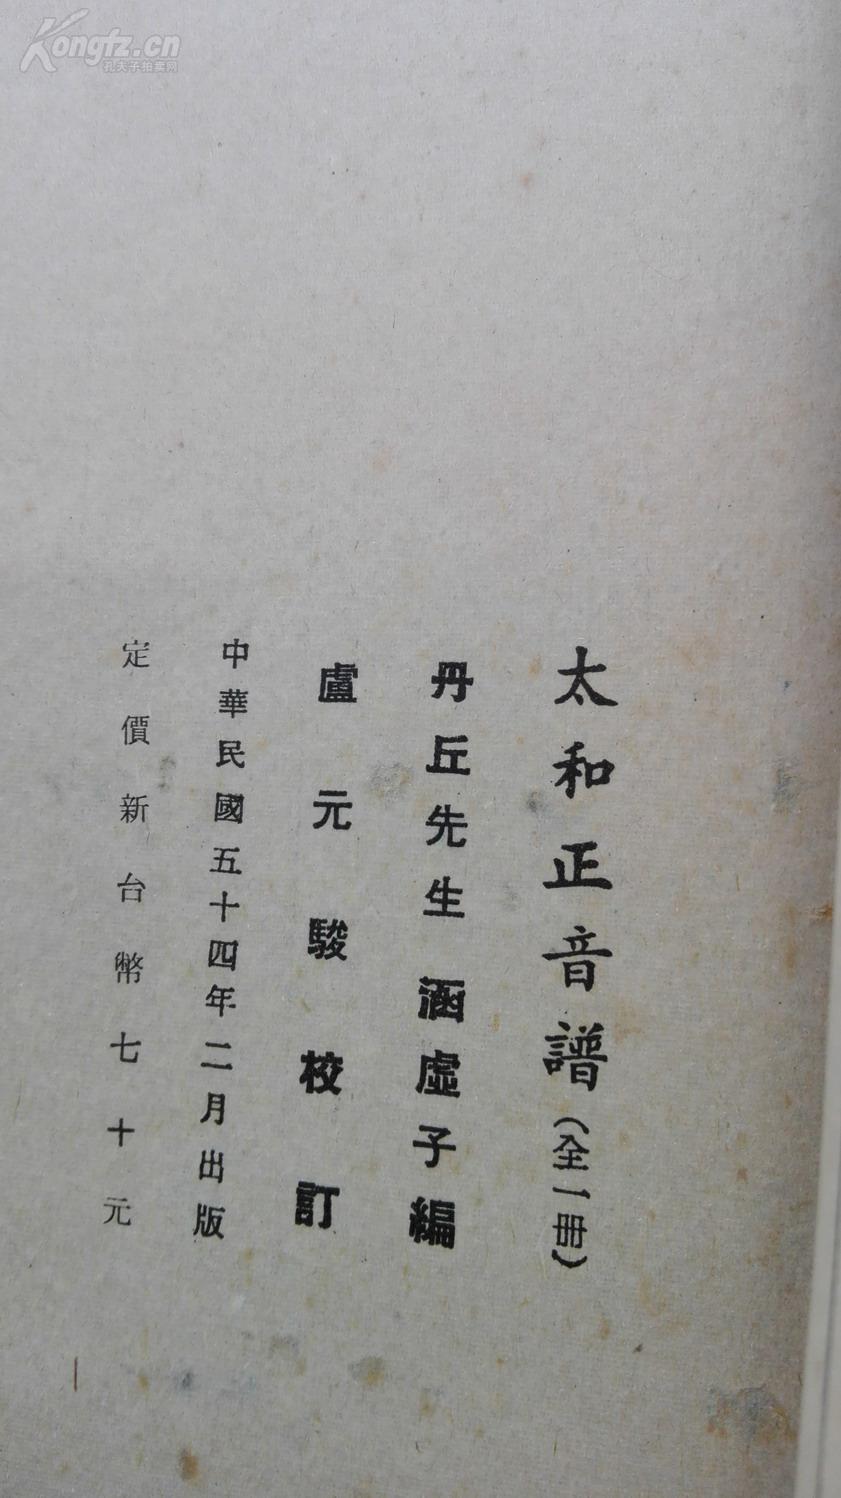 Kongfz.cn
孔夫子拍卖网
太和正音譜（全一冊）
丹丘先生 涵虛子編
盧元駿校訂
中華民國五十四年二月出版
定價新台幣七十元